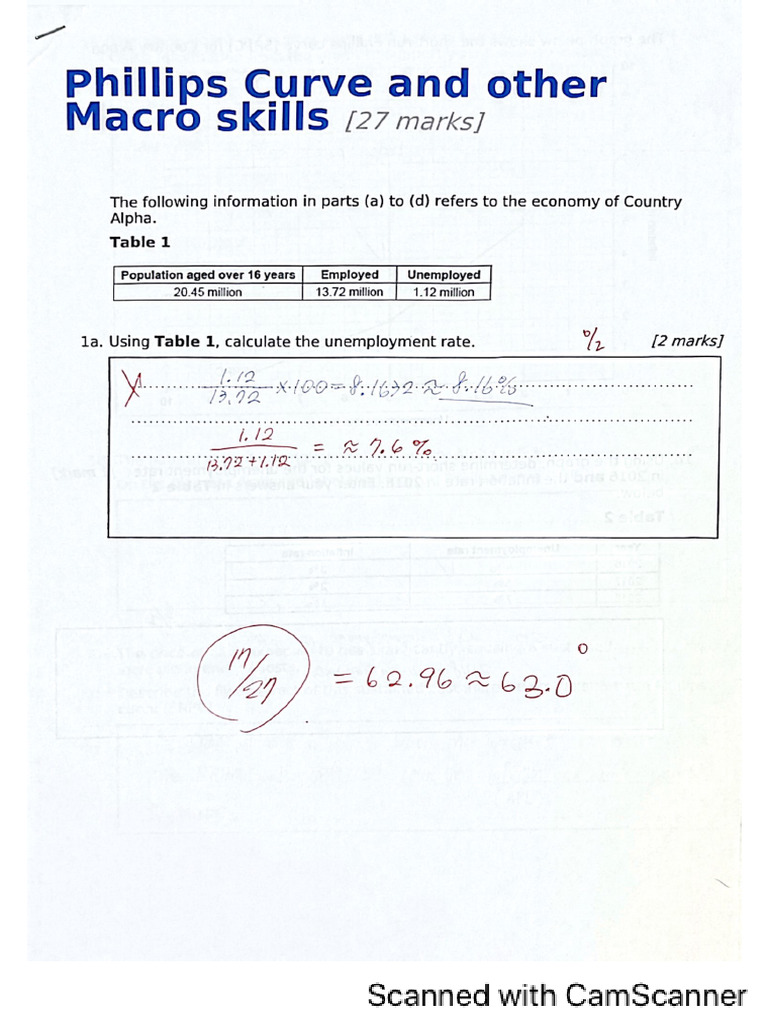 Phillips Curve and other
Macro skills [27 marks]
The following information in parts (a) to (d) refers to the economy of Country
Alpha.
Table 1
Population aged over 16 years Employed Unemployed
20.45 million 13.72 million 1.12 million
1a. Using Table 1, calculate the unemployment rate. 0/2 [2 marks]
X 1.12/13.72 × 100 = 8.1632 ≈ 8.16%
1.12/13.72+1.12 = ≈ 7.6%
17/27 = 62.96 ≈ 63.0
Scanned with CamScanner